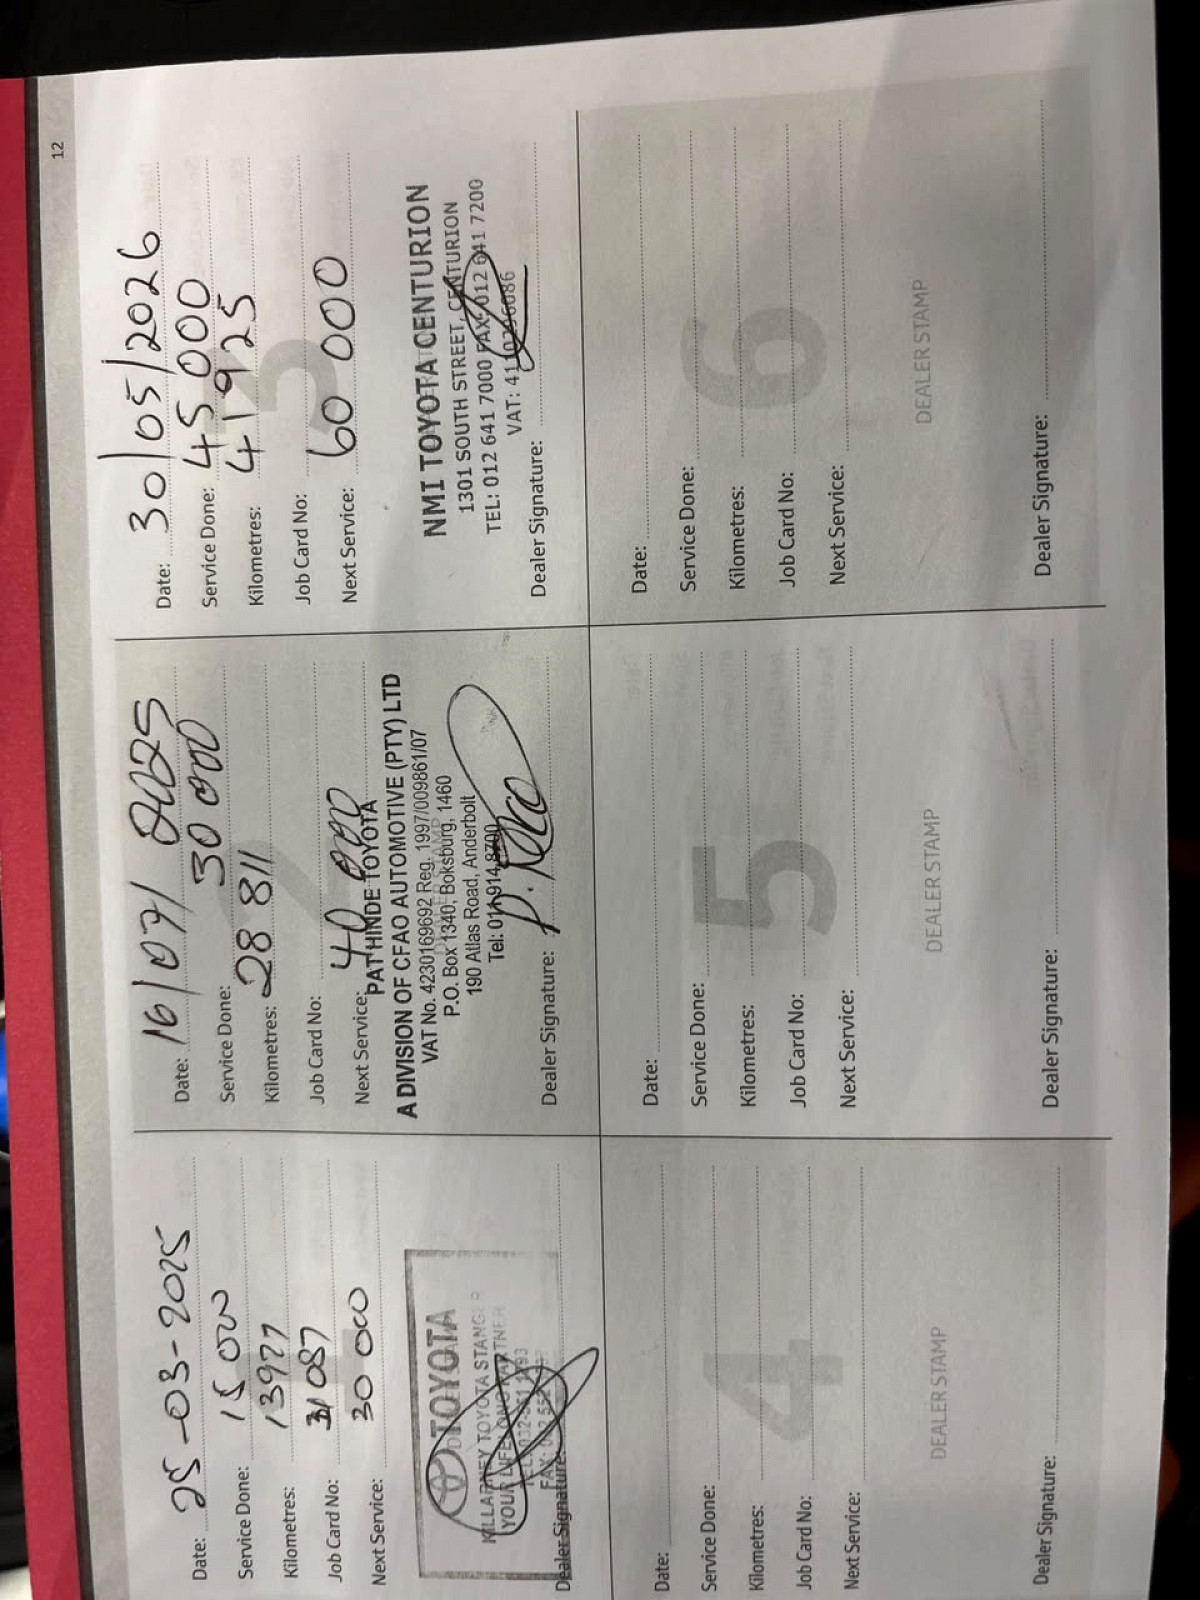 12
1
Date: 25-03-2025
Service Done: 15 000
Kilometres: 13977
Job Card No: 31087
Next Service: 30 000
TOYOTA
KILLARNEY TOYOTA STANGER
YOUR LIFELONG PARTNER
Dealer Signature:
2
Date: 16/07/2025
Service Done: 30 000
Kilometres: 28 811
Job Card No:
Next Service: 40 000
PAT HINDE TOYOTA
A DIVISION OF CFAO AUTOMOTIVE (PTY) LTD
VAT No. 4230169692 Reg. 1997/009861/07
P.O. Box 1340, Boksburg, 1460
190 Atlas Road, Anderbolt
Tel: 011 914 8700
Dealer Signature:
3
Date: 30/05/2026
Service Done: 45 000
Kilometres: 41925
Job Card No:
Next Service: 60 000
NMI TOYOTA CENTURION
1301 SOUTH STREET, CENTURION
TEL: 012 641 7000 FAX: 012 641 7200
VAT:
Dealer Signature:
4
Date:
Service Done:
Kilometres:
Job Card No:
Next Service:
DEALER STAMP
Dealer Signature:
5
Date:
Service Done:
Kilometres:
Job Card No:
Next Service:
DEALER STAMP
Dealer Signature:
6
Date:
Service Done:
Kilometres:
Job Card No:
Next Service:
DEALER STAMP
Dealer Signature: